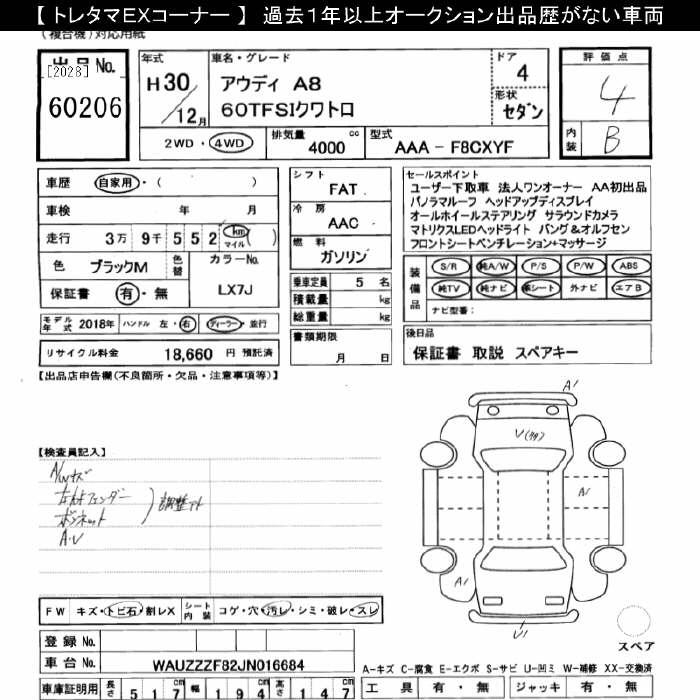 【 トレタマEXコーナー 】 過去1年以上オークション出品歴がない車両
(複合機)対応用紙
出品No.
[2028]
60206
年式
H30
12月
車名・グレード
アウディ A8
60TFSIクワトロ
ドア
4
形状
セダン
評価点
4
内装
B
2WD・4WD
排気量
4000 cc
型式
AAA - F8CXYF
車歴 自家用・( )
車検 年 月
走行 3万 9千 5 5 2 km マイル ( )
色 ブラックM 色替 カラーNo.
保証書 有・無 LX7J
モデル年式 2018年 ハンドル 左・右 ディーラー・並行
リサイクル料金 18,660 円 預託済
シフト
FAT
冷房
AAC
燃料
ガソリン
乗車定員 5 名
積載量 kg
総重量 kg
書類期限
月 日
セールスポイント
ユーザー下取車 法人ワンオーナー AA初出品
パノラマルーフ ヘッドアップディスプレイ
オールホイールステアリング サラウンドカメラ
マトリクスLEDヘッドライト バング&オルフセン
フロントシートベンチレーション+マッサージ
装備品
S/R 純A/W P/S P/W ABS
純TV 純ナビ 革シート 外ナビ エアB
ナビ型番:
後日品
保証書 取説 スペアキー
【出品店申告欄(不良箇所・欠品・注意事項等)】
【検査員記入】
A/Wキズ
ボンネット
調整
A・U
A1
A1
A1
スペア
FW キズ・トビ石・割レX シート内装 コゲ・穴・汚レ・シミ・破レ・スレ
登録 No.
車台 No. WAUZZZF82JN016684
A-キズ C-腐食 E-エクボ S-サビ U-凹ミ W-補修 XX-交換済
車庫証明用 長さ 5 1 7 cm 幅 1 9 4 cm 高さ 1 4 7 cm
工具 有・無 ジャッキ 有・無